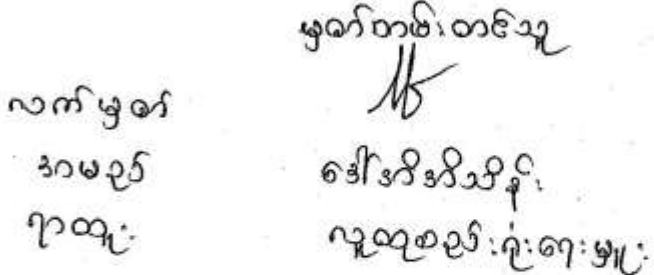 မှတ်တမ်းတင်သူ
လက်မှတ်
အမည် ဒေါ်အိအိသိန်း
ရာထူး လူထုစည်းရုံးရေးမှူး